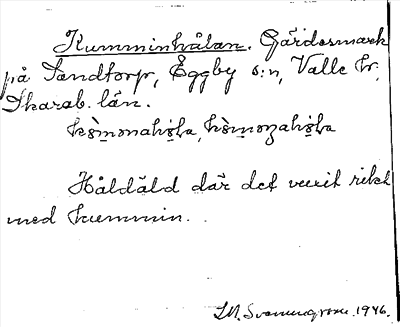 Kumminhålan. Gärdesmark
på Sandtorp, Eggby s:n, Valle hr,
Skarab. län.
Håldäld där det vuxit rikt
med kummin.
1946.